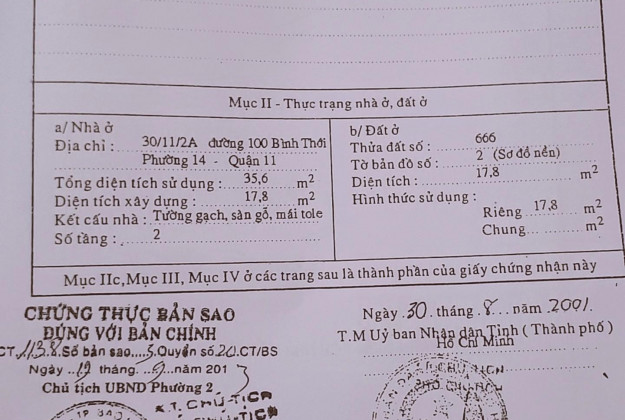 Mục II - Thực trạng nhà ở, đất ở
a/ Nhà ở
Địa chỉ : 30/11/2A đường 100 Bình Thới
Phường 14 - Quận 11
Tổng diện tích sử dụng : 35,6 m²
Diện tích xây dựng : 17,8 m²
Kết cấu nhà : Tường gạch, sàn gỗ, mái tole
Số tầng : 2
b/ Đất ở
Thửa đất số : 666
Tờ bản đồ số : 2 (Sơ đồ nền)
Diện tích : 17,8 m²
Hình thức sử dụng :
Riêng 17,8 m²
Chung m²
Mục IIc, Mục III, Mục IV ở các trang sau là thành phần của giấy chứng nhận này
CHỨNG THỰC BẢN SAO
ĐÚNG VỚI BẢN CHÍNH
CT 1138 Số bản sao 5 Quyển số 20 CT/BS
Ngày 19 tháng 9 năm 2013
Chủ tịch UBND Phường 2
K.T. CHỦ TỊCH
Ngày 30 tháng 8 năm 2001
T.M Uỷ ban Nhân dân Tỉnh ( Thành phố )
Hồ Chí Minh